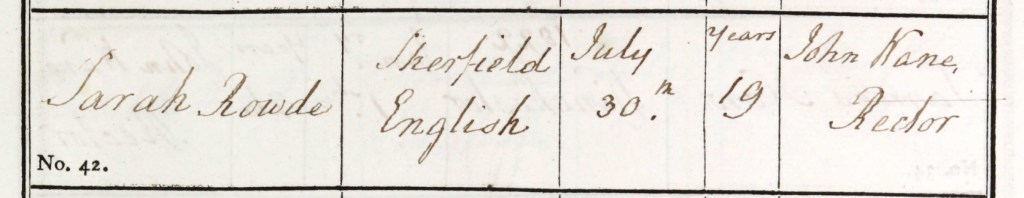 Sarah Rowde
No. 42.
Sherfield
English
July
30th.
years
19
John Kane,
Rector